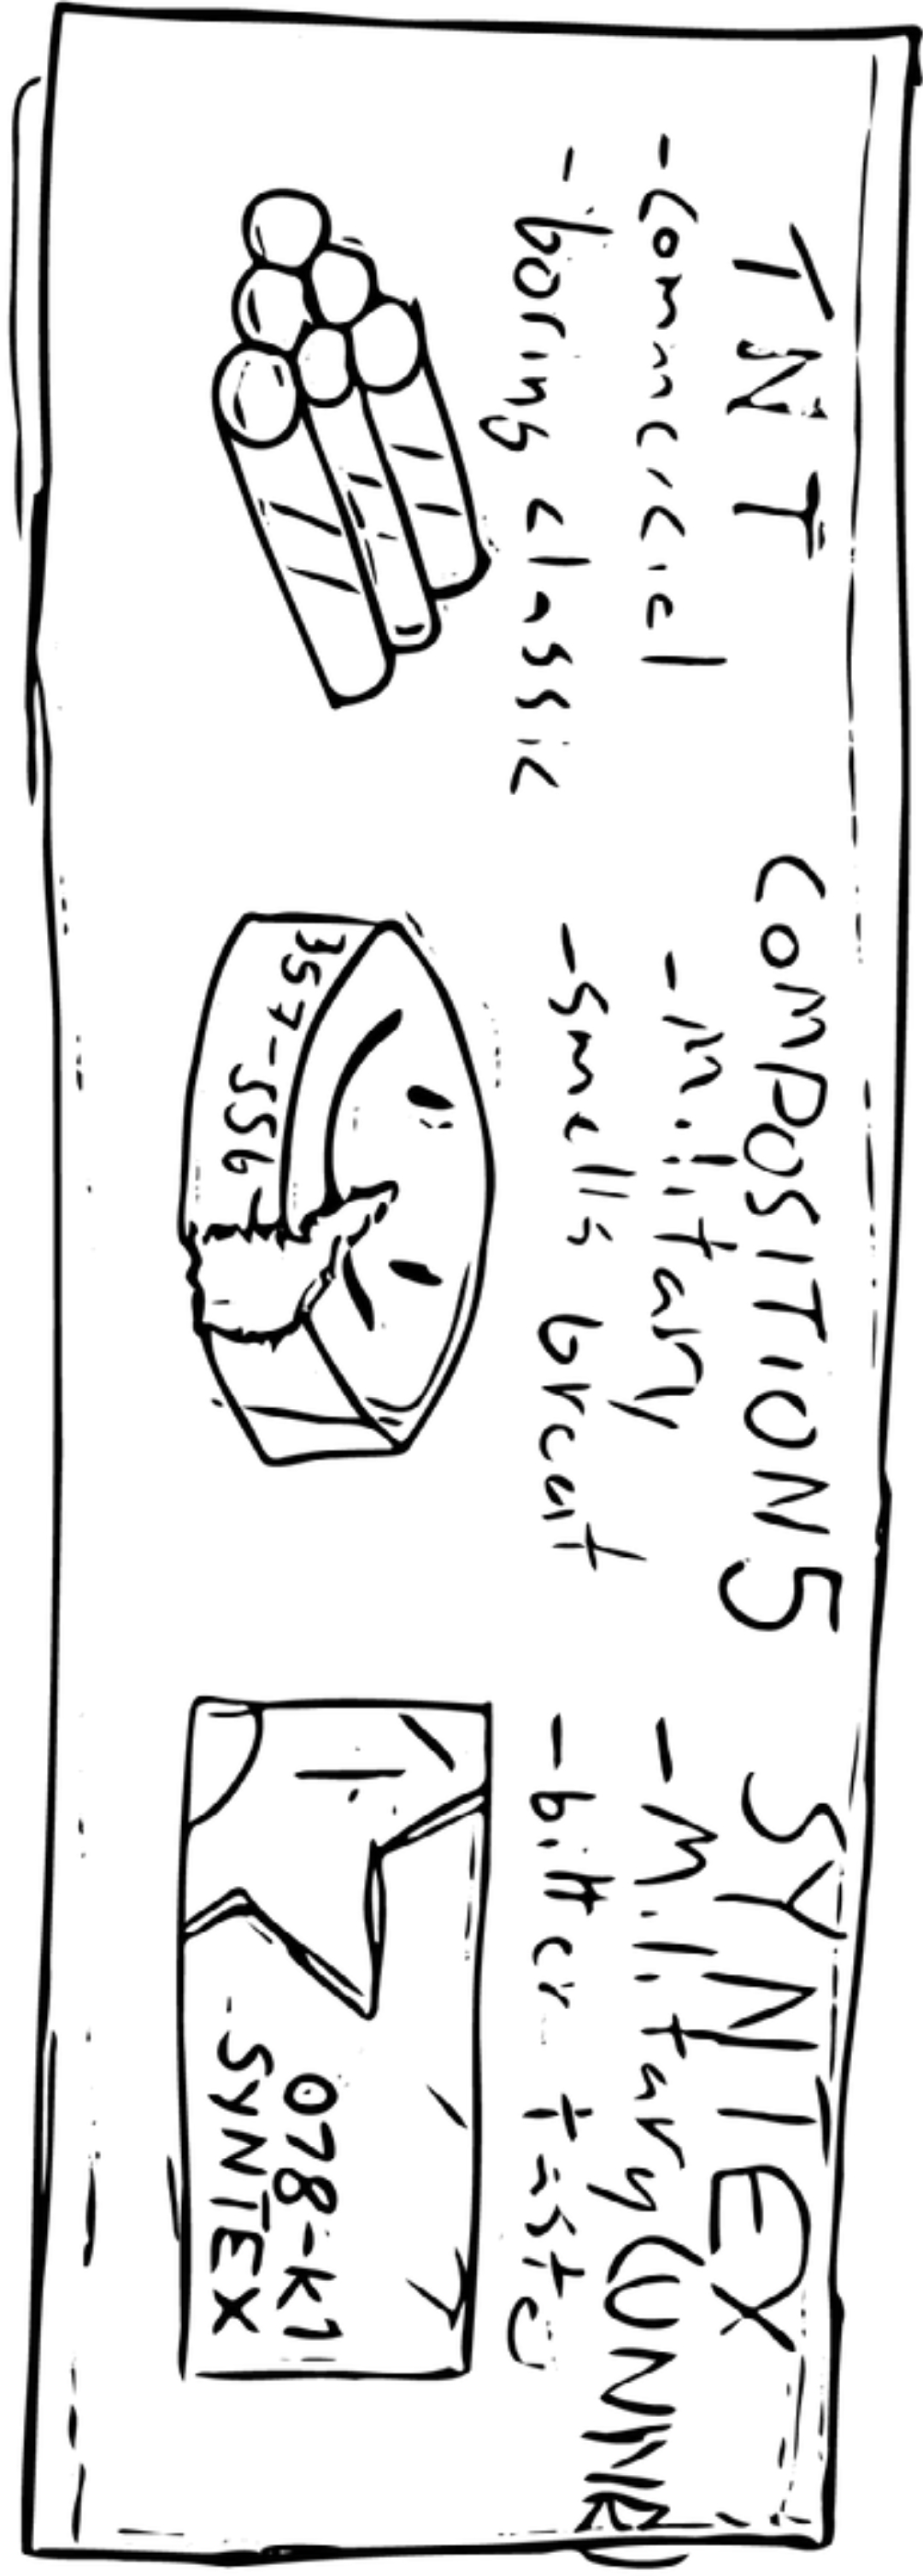 TNT
- commercial
- boring classic
COMPOSITION 5
- Military
- smells great
357-556-
SYNTEX
- Military (UNNR
- bitter taste
078-K1
- SYNTEX